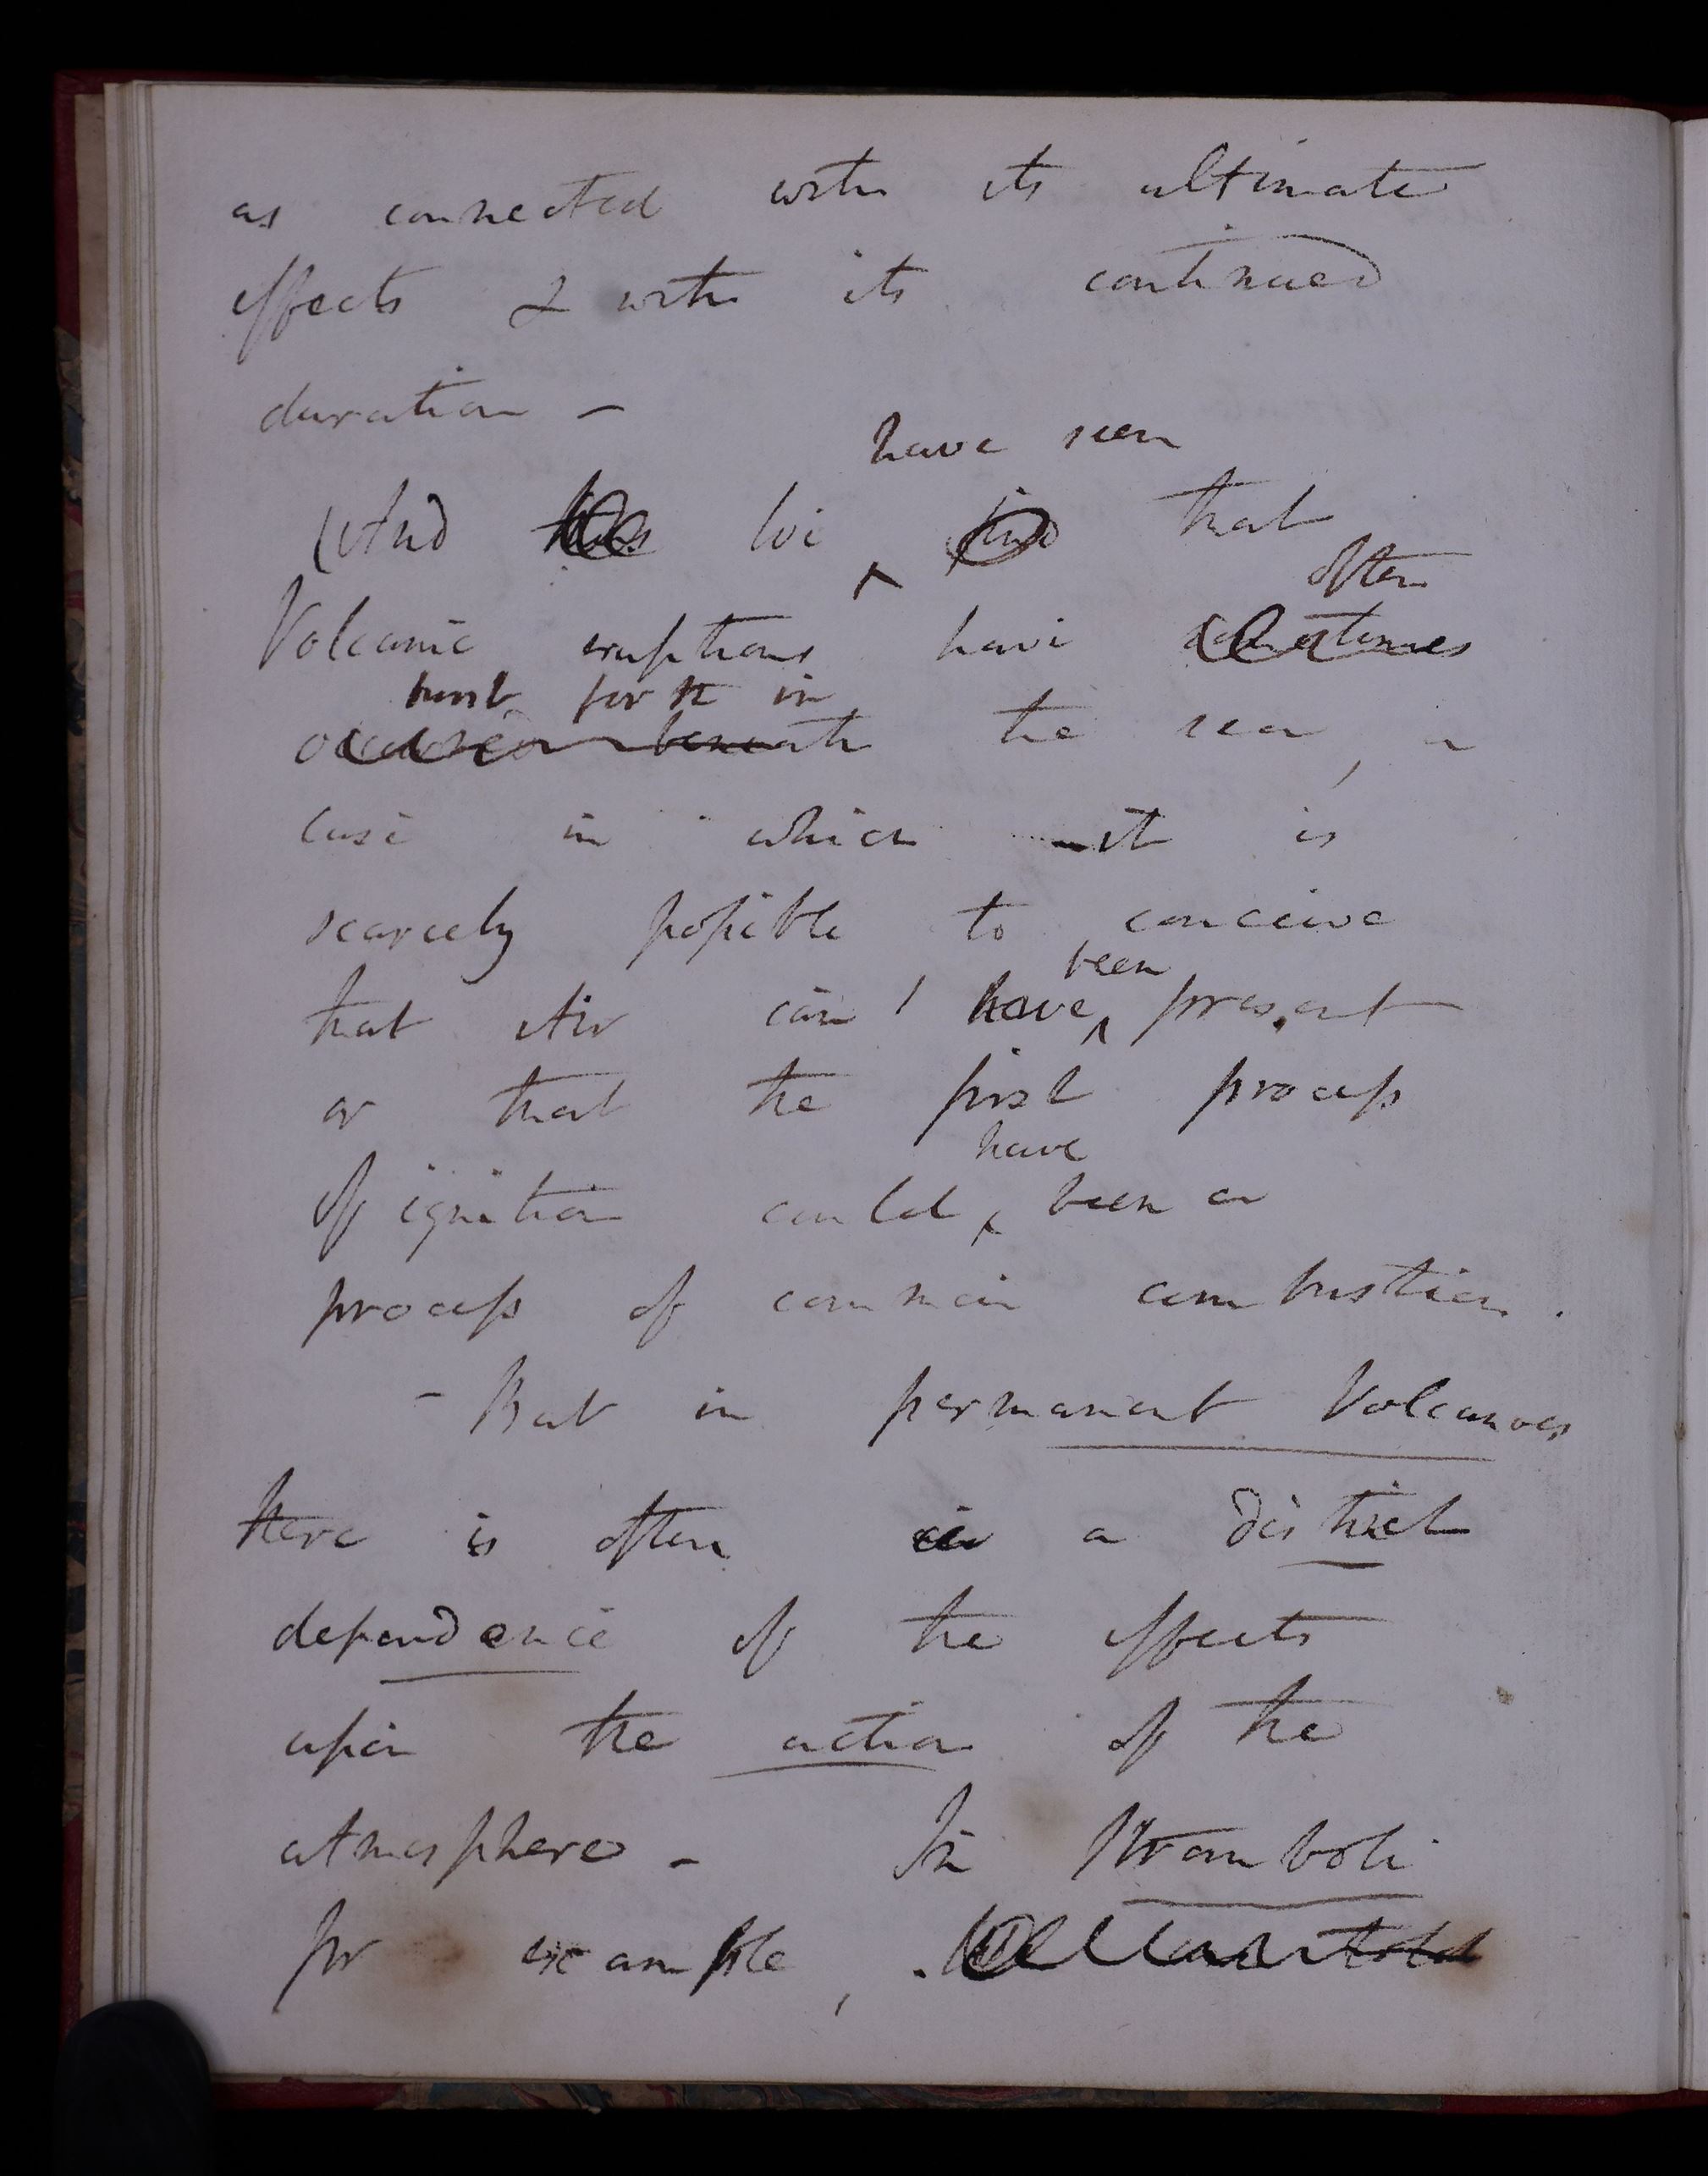 as connected with its ultimate
effects & with its continued
duration -
have seen
(And we ^ find that
often
Volcanic eruptions have sometimes
burst forth in
occurred beneath the sea, a
case in which it is
scarcely possible to conceive
been
that Air can have ^ present
or that the first process
have
of ignition could ^ been a
process of common combustion.
- But in permanent Volcanoes
there is often a distinct
dependence of the effects
upon the action of the
atmosphere - In Stromboli
for example,